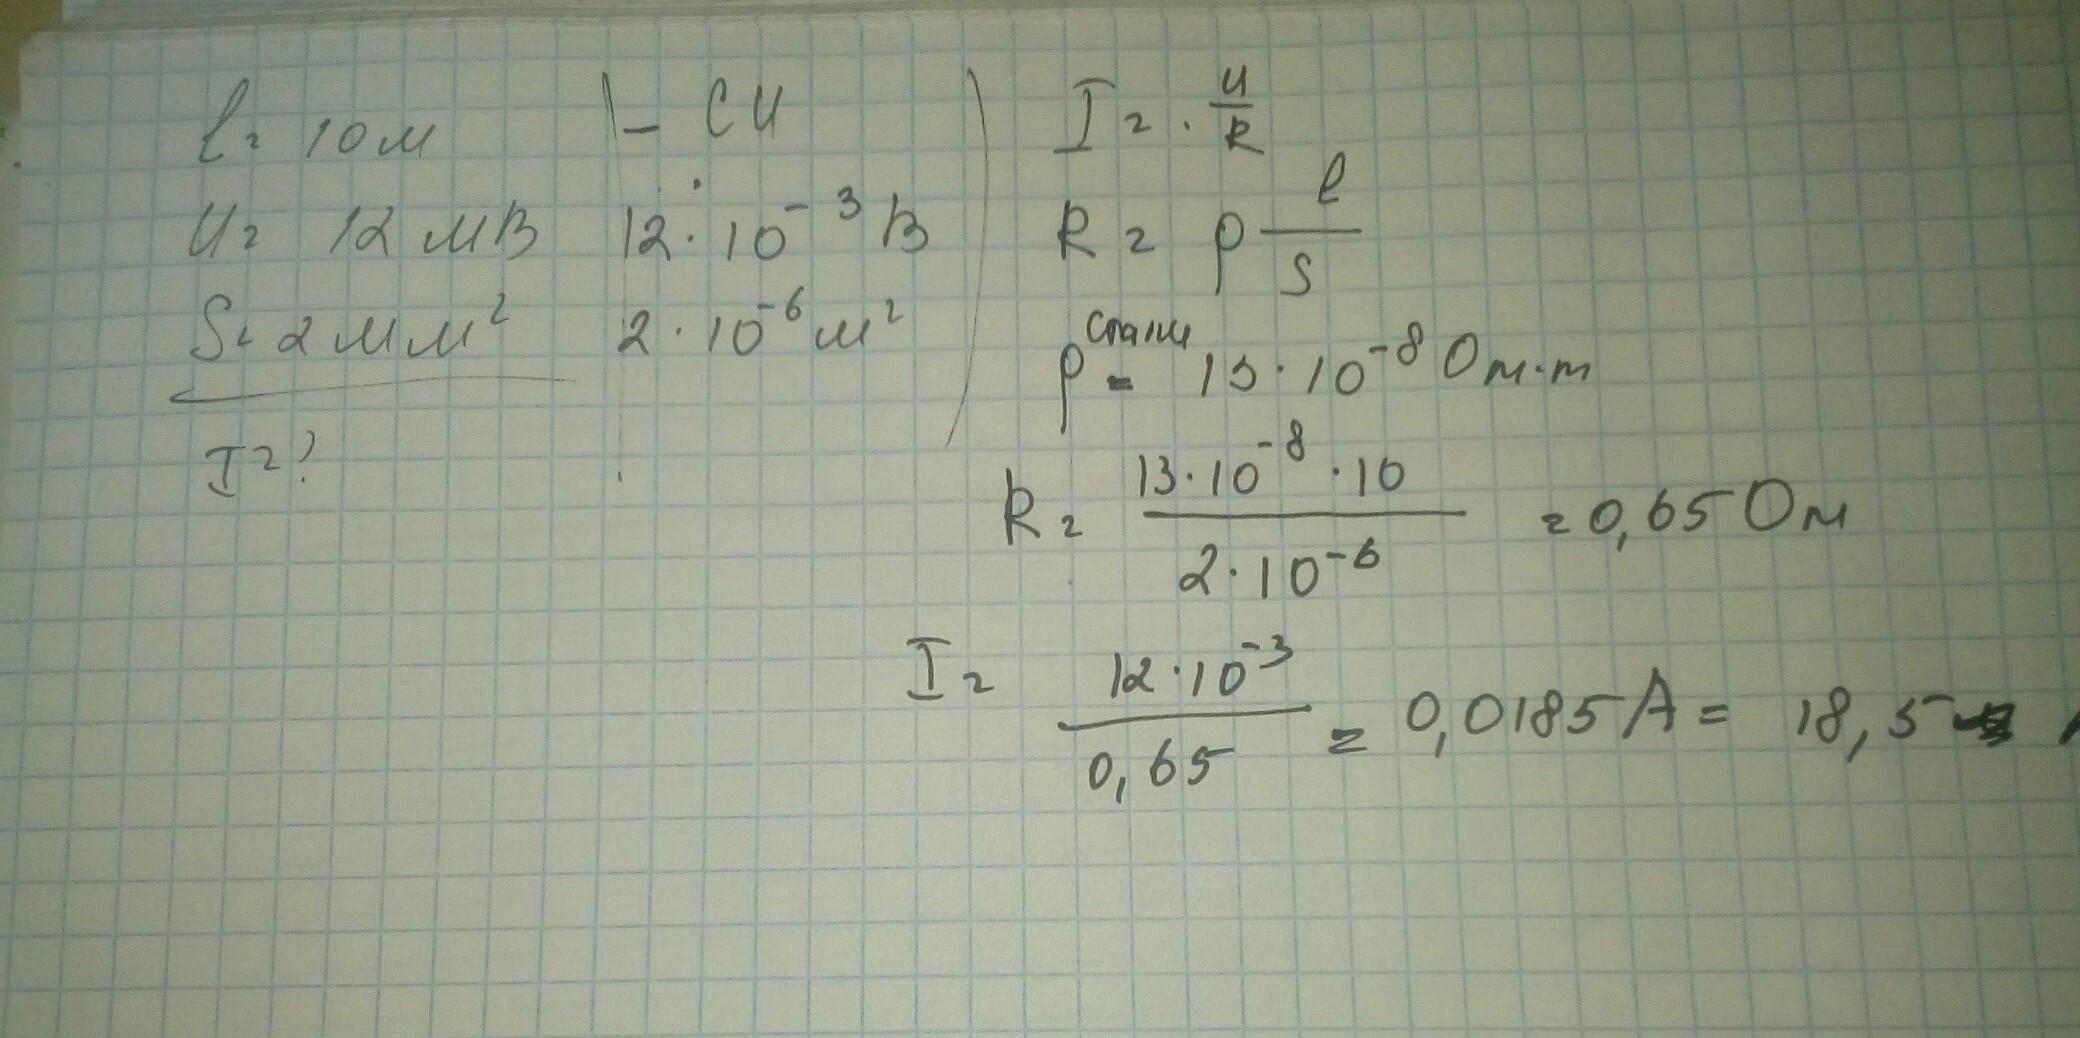 l = 10 м
U = 12 мВ
S = 2 мм²
I = ?
СИ
12 · 10⁻³ В
2 · 10⁻⁶ м²
I = U/R
R = ρ l/S
ρ стали = 13 · 10⁻⁸ Ом·m
R = 13·10⁻⁸ · 10 / 2·10⁻⁶ = 0,65 Ом
I = 12·10⁻³ / 0,65 = 0,0185 А = 18,5